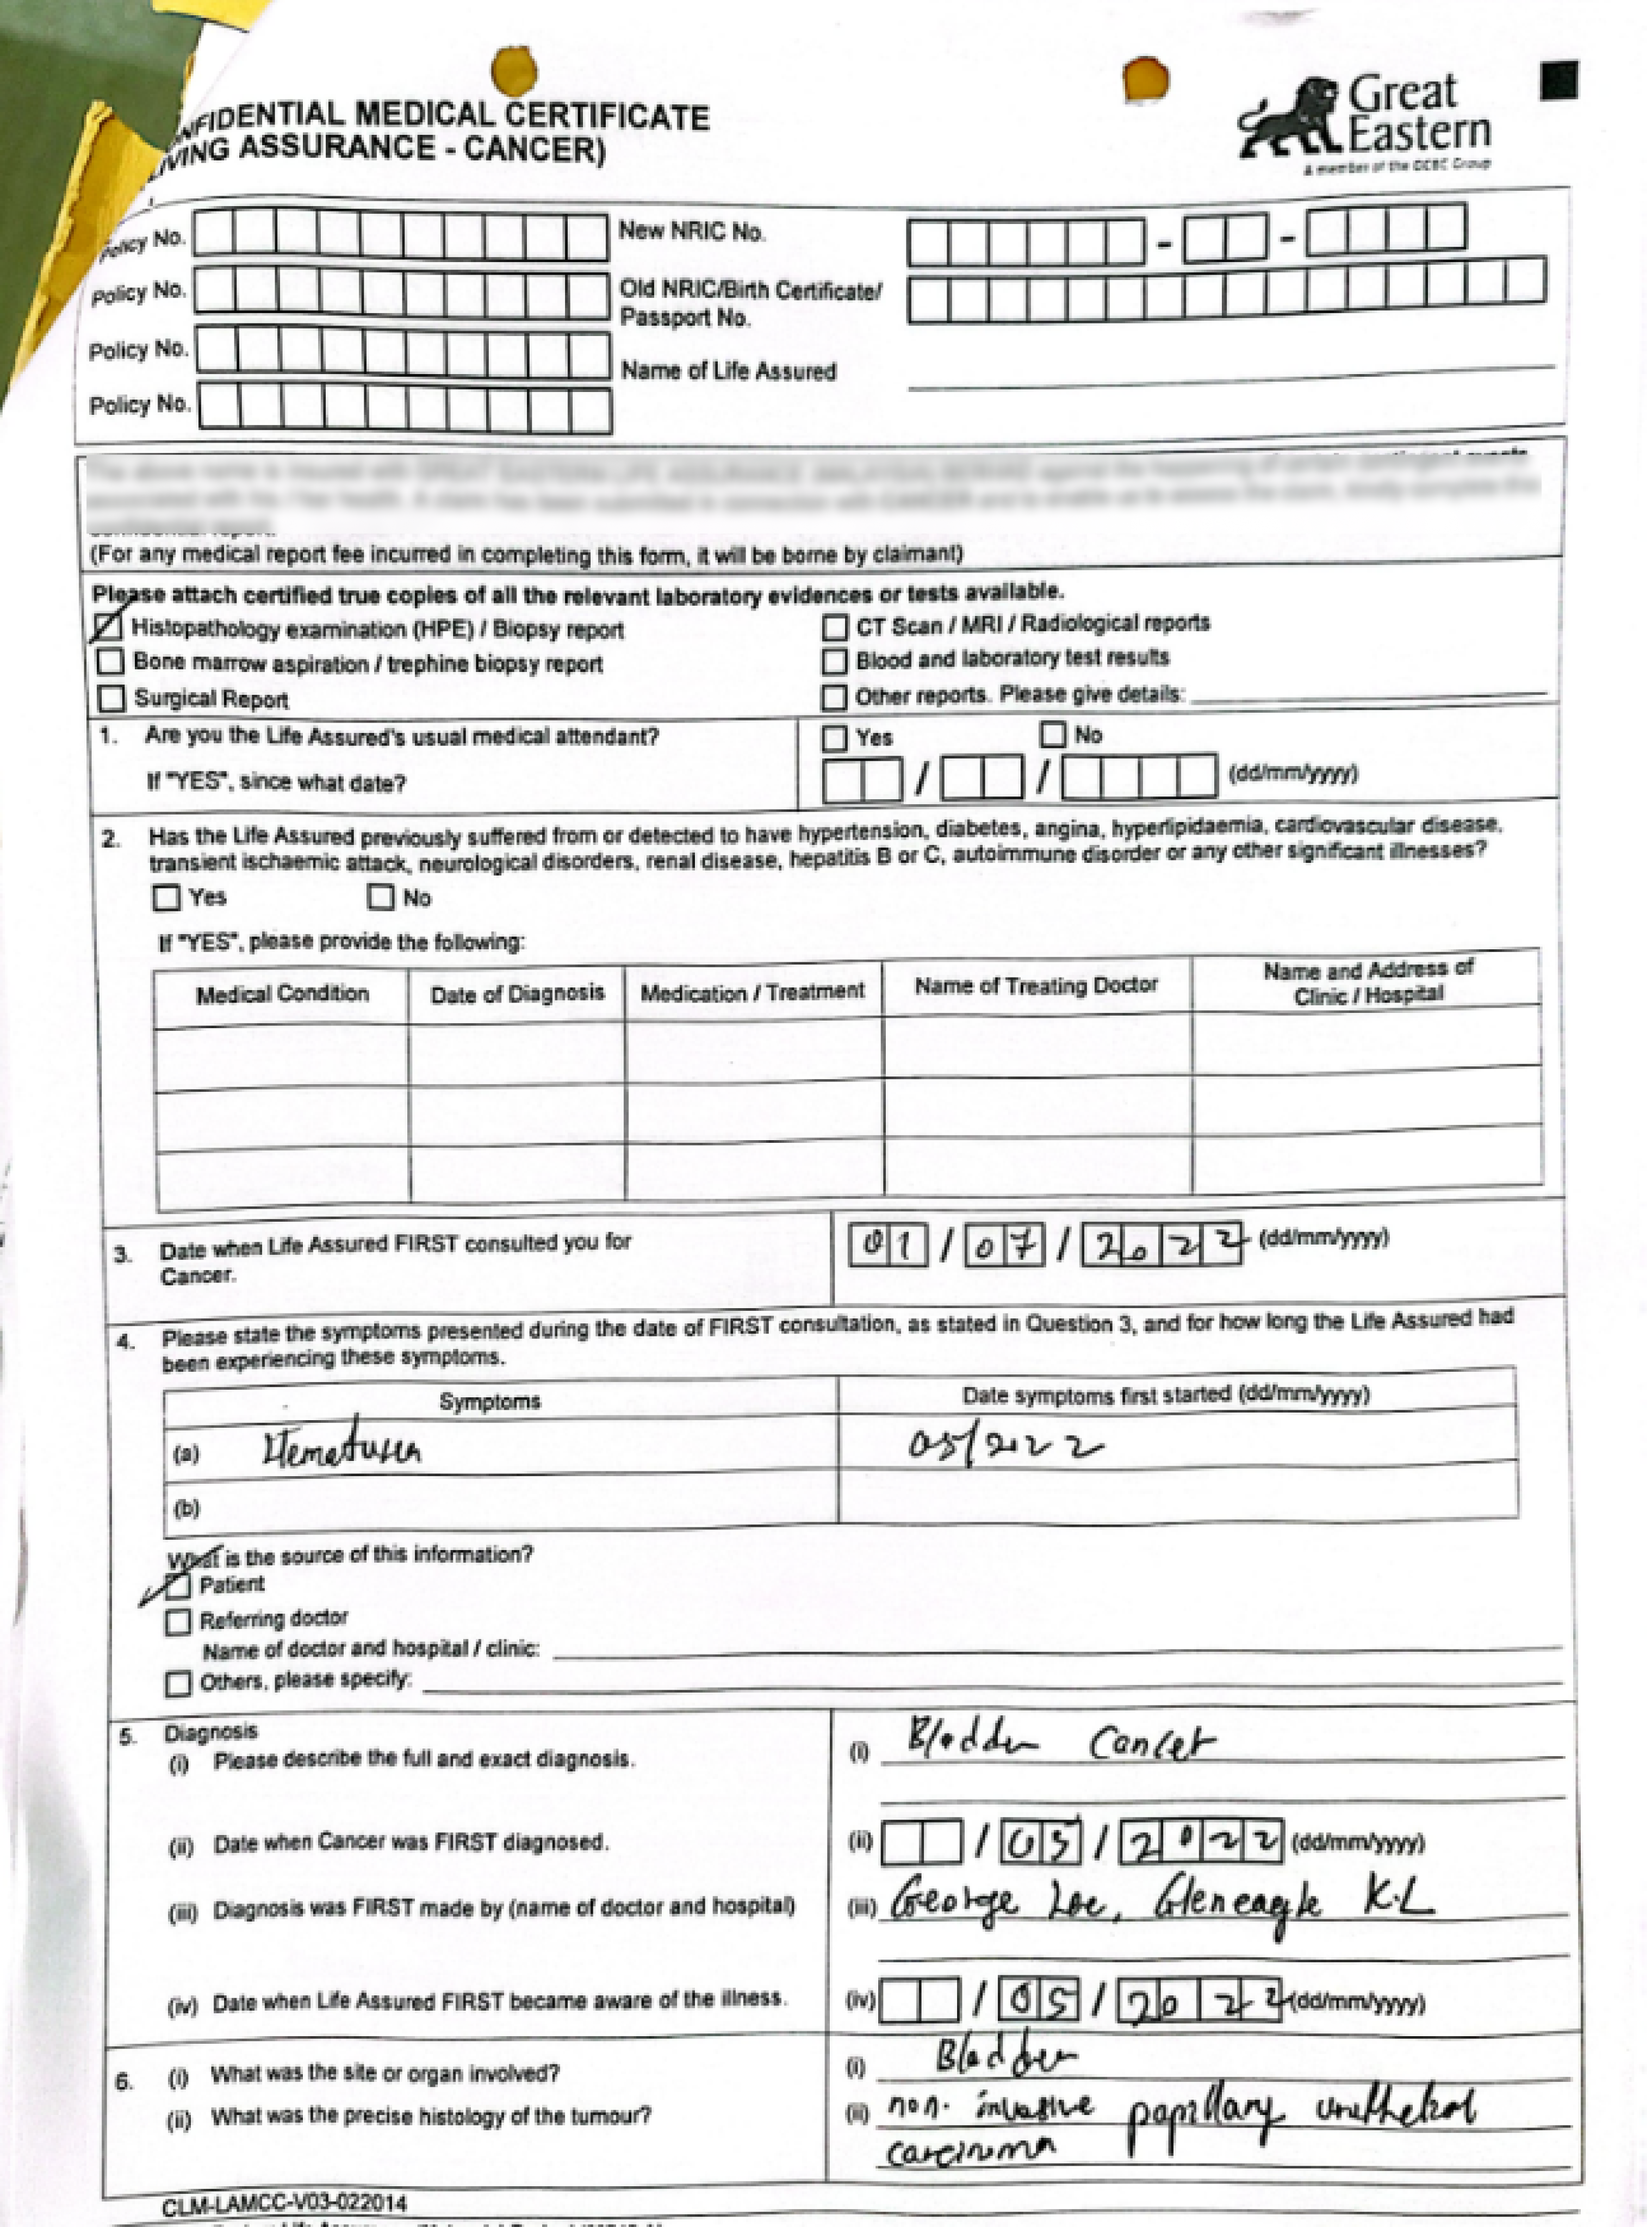 NFIDENTIAL MEDICAL CERTIFICATE
VING ASSURANCE - CANCER)
Great
Eastern
A member of the OCBC Group
Policy No.
New NRIC No.
Policy No.
Old NRIC/Birth Certificate/
Passport No.
Policy No.
Name of Life Assured
Policy No.
(For any medical report fee incurred in completing this form, it will be borne by claimant)
Please attach certified true copies of all the relevant laboratory evidences or tests available.
Histopathology examination (HPE) / Biopsy report
CT Scan / MRI / Radiological reports
Bone marrow aspiration / trephine biopsy report
Blood and laboratory test results
Surgical Report
Other reports. Please give details:
1. Are you the Life Assured's usual medical attendant?
Yes No
If "YES", since what date?
/ / (dd/mm/yyyy)
2. Has the Life Assured previously suffered from or detected to have hypertension, diabetes, angina, hyperlipidaemia, cardiovascular disease,
transient ischaemic attack, neurological disorders, renal disease, hepatitis B or C, autoimmune disorder or any other significant illnesses?
Yes No
If "YES", please provide the following:
Medical Condition
Date of Diagnosis
Medication / Treatment
Name of Treating Doctor
Name and Address of
Clinic / Hospital
3. Date when Life Assured FIRST consulted you for
Cancer.
01 / 07 / 2022 (dd/mm/yyyy)
4. Please state the symptoms presented during the date of FIRST consultation, as stated in Question 3, and for how long the Life Assured had
been experiencing these symptoms.
Symptoms
Date symptoms first started (dd/mm/yyyy)
(a) Hematuria
05/2022
(b)
What is the source of this information?
Patient
Referring doctor
Name of doctor and hospital / clinic:
Others, please specify:
5. Diagnosis
(i) Please describe the full and exact diagnosis.
(i) Bladder Cancer
(ii) Date when Cancer was FIRST diagnosed.
(ii) / 05 / 2022 (dd/mm/yyyy)
(iii) Diagnosis was FIRST made by (name of doctor and hospital)
(iii) George Lee, Gleneagle K.L
(iv) Date when Life Assured FIRST became aware of the illness.
(iv) / 05 / 2022 (dd/mm/yyyy)
6. (i) What was the site or organ involved?
(i) Bladder
(ii) What was the precise histology of the tumour?
(ii) non. invasive papillary urothelial
carcinoma
CLM-LAMCC-V03-022014